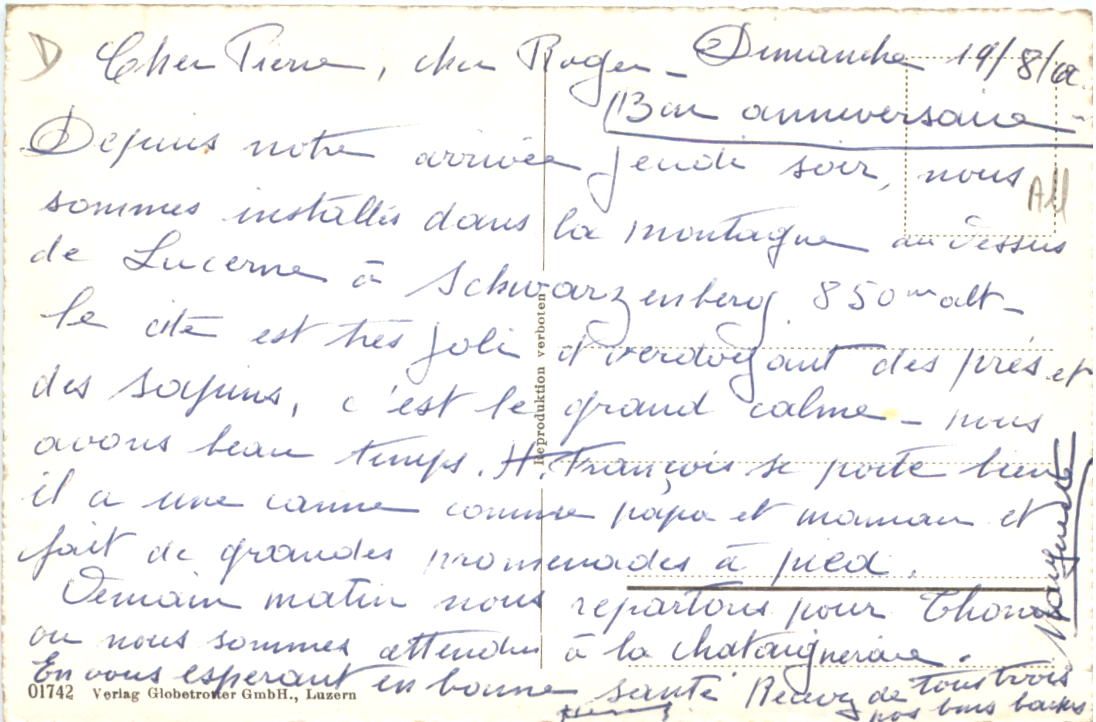 D
Cher Pierre, cher Roger - Dimanche 19/8/62
Bon anniversaire -
Depuis notre arrivée jeudi soir, nous
All
sommes installés dans la montagne au dessus
de Lucerne à Schwarzenberg 850m alt -
le cité est très joli et verdoyant des prés et
des sapins, c'est le grand calme - nous
avons beau temps. H. François se porte bien
il a une canne comme papa et maman et
fait de grandes promenades à pied.
Demain matin nous repartons pour Thonon
ou nous sommes attendus à la chataigneraie.
En vous esperant en bonne santé Recevez de tous trois
nos bons baisers
Marguerite
01742 Verlag Globetrotter GmbH., Luzern
Reproduktion verboten